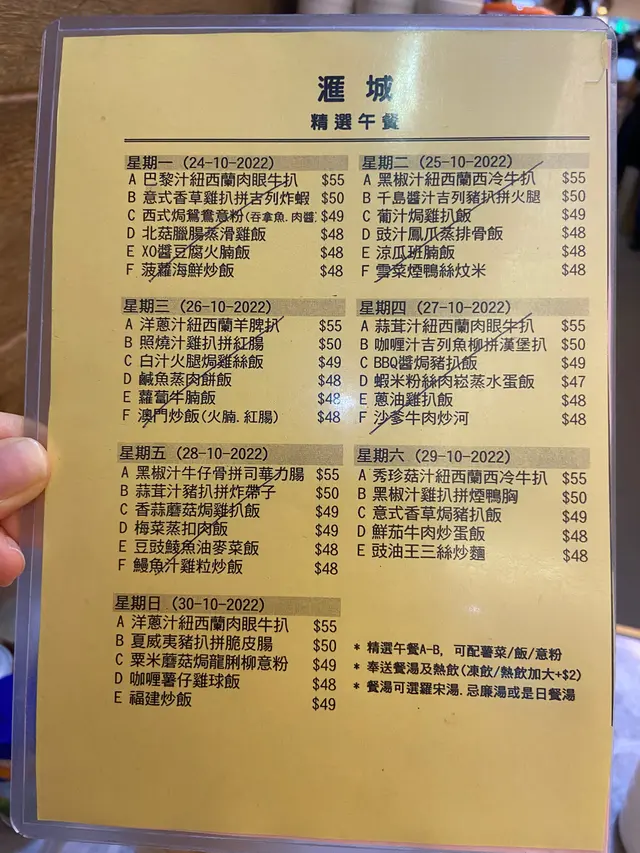 滙城
精選午餐
星期一 (24-10-2022)
A 巴黎汁紐西蘭肉眼牛扒 $55
B 意式香草雞扒拼吉列炸蝦 $50
C 西式焗鴛鴦意粉(吞拿魚.肉醬) $49
D 北菇臘腸蒸滑雞飯 $48
E XO醬豆腐火腩飯 $48
F 菠蘿海鮮炒飯 $48
星期二 (25-10-2022)
A 黑椒汁紐西蘭西冷牛扒 $55
B 千島醬汁吉列豬扒拼火腿 $50
C 葡汁焗雞扒飯 $49
D 豉汁鳳爪蒸排骨飯 $48
E 涼瓜班腩飯 $48
F 雪菜煙鴨絲炆米 $48
星期三 (26-10-2022)
A 洋蔥汁紐西蘭羊脾扒 $55
B 照燒汁雞扒拼紅腸 $50
C 白汁火腿焗雞絲飯 $49
D 鹹魚蒸肉餅飯 $48
E 蘿蔔牛腩飯 $48
F 澳門炒飯(火腩.紅腸) $48
星期四 (27-10-2022)
A 蒜茸汁紐西蘭肉眼牛扒 $55
B 咖喱汁吉列魚柳拼漢堡扒 $50
C BBQ醬焗豬扒飯 $49
D 蝦米粉絲肉崧蒸水蛋飯 $47
E 蔥油雞扒飯 $48
F 沙爹牛肉炒河 $48
星期五 (28-10-2022)
A 黑椒汁牛仔骨拼司華力腸 $55
B 蒜茸汁豬扒拼炸帶子 $50
C 香蒜蘑菇焗雞扒飯 $49
D 梅菜蒸扣肉飯 $49
E 豆豉鯪魚油麥菜飯 $48
F 鰻魚汁雞粒炒飯 $48
星期六 (29-10-2022)
A 秀珍菇汁紐西蘭西冷牛扒 $55
B 黑椒汁雞扒拼煙鴨胸 $50
C 意式香草焗豬扒飯 $49
D 鮮茄牛肉炒蛋飯 $48
E 豉油王三絲炒麵 $48
星期日 (30-10-2022)
A 洋蔥汁紐西蘭肉眼牛扒 $55
B 夏威夷豬扒拼脆皮腸 $50
C 粟米蘑菇焗龍脷柳意粉 $49
D 咖喱薯仔雞球飯 $48
E 福建炒飯 $49
* 精選午餐A-B, 可配薯菜/飯/意粉
* 奉送餐湯及熱飲(凍飲/熱飲加大+$2)
* 餐湯可選羅宋湯.忌廉湯或是日餐湯